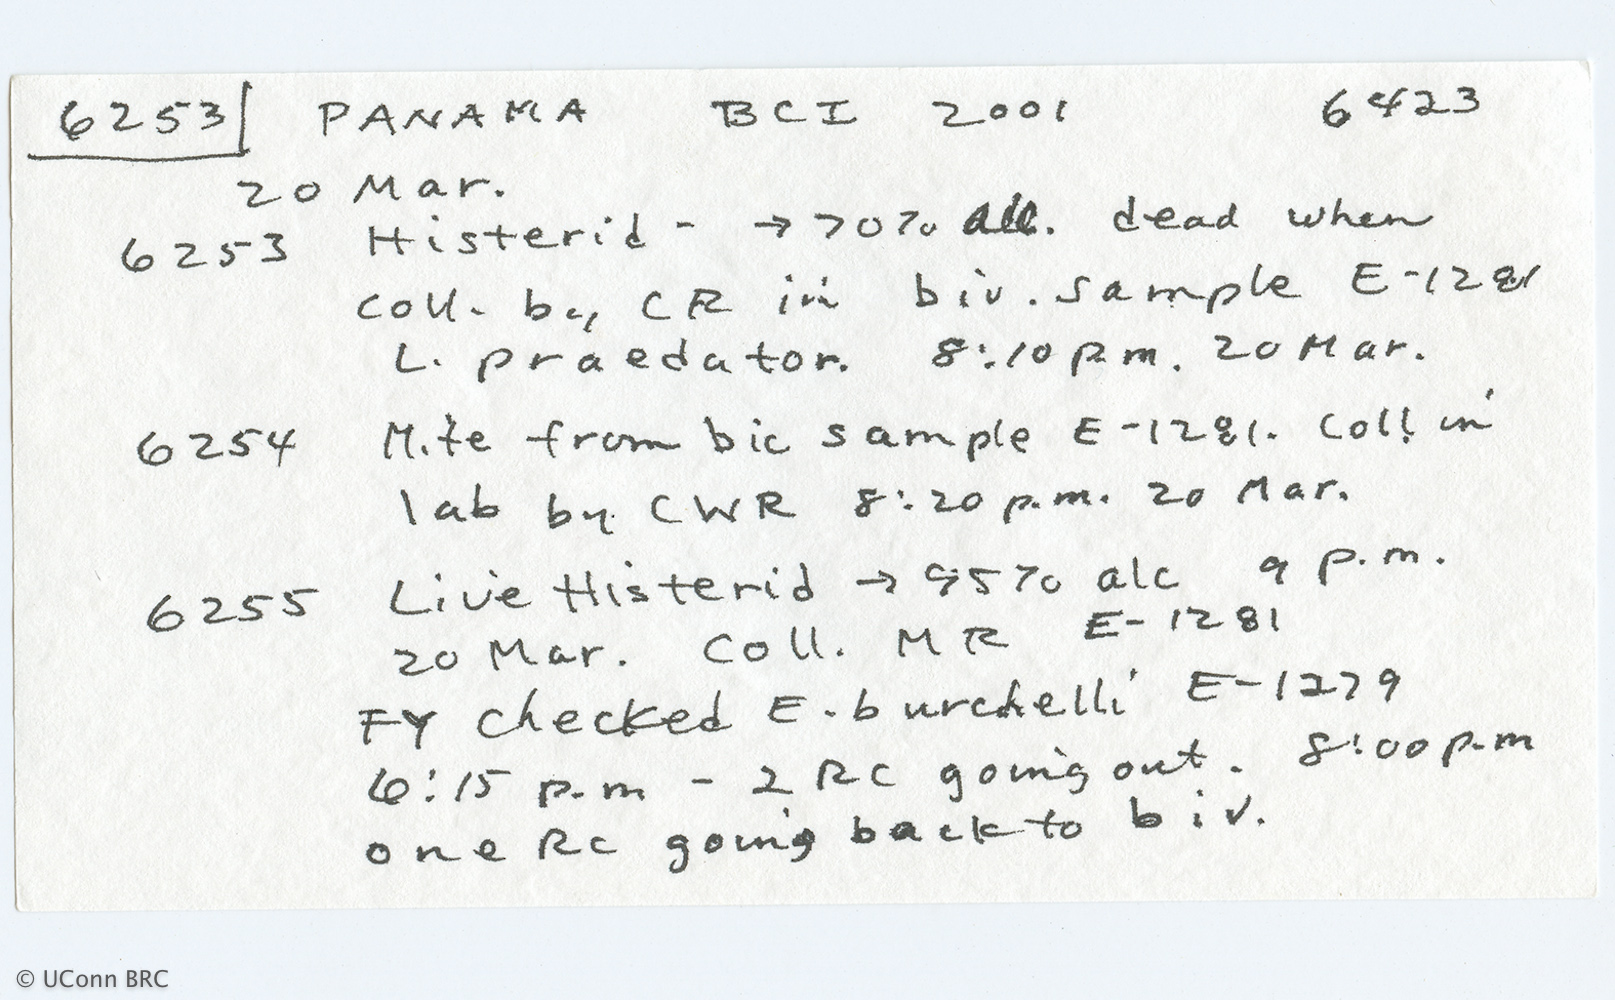 6253 PANAMA BCI 2001 6423
20 Mar.
6253 Histerid - → 70% alc. dead when
coll. by CR in biv. sample E-1281
L. praedator. 8:10 p.m. 20 Mar.
6254 Mite from bic sample E-1281. Coll. in
lab by CWR 8:20 p.m. 20 Mar.
6255 Live Histerid → 95% alc 9 p.m.
20 Mar. Coll. MR E-1281
FY checked E. burchelli E-1279
6:15 p.m - 2 RC going out. 8:00 p.m
one RC going back to biv.
© UConn BRC